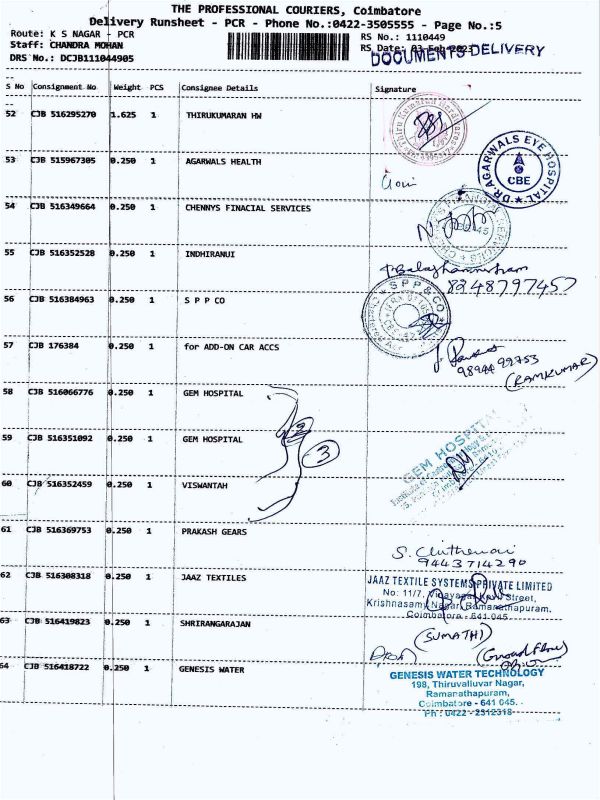 THE PROFESSIONAL COURIERS, Coimbatore
Delivery Runsheet - PCR - Phone No.:0422-3505555 - Page No.:5
Route: K S NAGAR - PCR
RS No.: 1110449
Staff: CHANDRA MOHAN
RS Date: 03 Feb 2023
DOCUMENTS DELIVERY
DRS No.: DCJB111044905
S No Consignment No Weight PCS Consignee Details Signature
52 CJB 516295270 1.625 1 THIRUKUMARAN HW
53 CJB 515967305 0.250 1 AGARWALS HEALTH
DR.AGARWALS EYE HOSPITAL
CBE
54 CJB 516349664 0.250 1 CHENNYS FINACIAL SERVICES
55 CJB 516352528 0.250 1 INDHIRANUI
8248797457
56 CJB 516384963 0.250 1 S P P CO
S P P & CO
57 CJB 176384 0.250 1 for ADD-ON CAR ACCS
9894499753
(RAMKUMAR)
58 CJB 516066776 0.250 1 GEM HOSPITAL
59 CJB 516351092 0.250 1 GEM HOSPITAL
3
GEM HOSPITAL
60 CJB 516352459 0.250 1 VISWANTAH
61 CJB 516369753 0.250 1 PRAKASH GEARS
9443714290
62 CJB 516308318 0.250 1 JAAZ TEXTILES
JAAZ TEXTILE SYSTEMS PRIVATE LIMITED
No: 11/7, Vinayagar Kovil Street,
Krishnasamy Nagar, Ramanathapuram,
Coimbatore - 641 045.
63 CJB 516419823 0.250 1 SHRIRANGARAJAN
(SUMATHI)
(Ground Floor)
64 CJB 516418722 0.250 1 GENESIS WATER
GENESIS WATER TECHNOLOGY
198, Thiruvalluvar Nagar,
Ramanathapuram,
Coimbatore - 641 045.
Ph : 0422 - 2312318